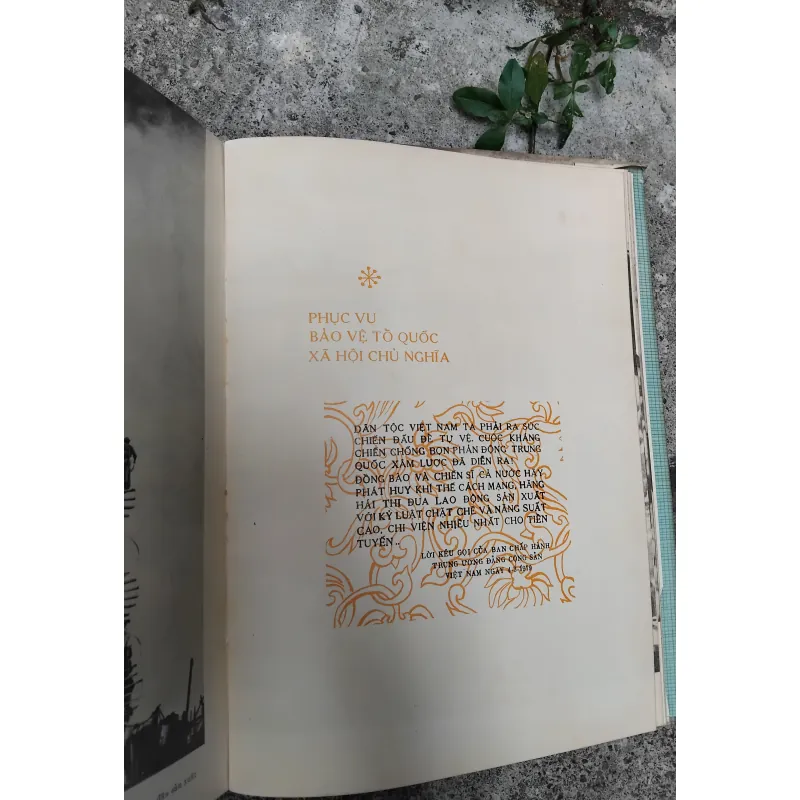 PHỤC VỤ
BẢO VỆ TỔ QUỐC
XÃ HỘI CHỦ NGHĨA
DÂN TỘC VIỆT NAM TA PHẢI RA SỨC
CHIẾN ĐẤU ĐỂ TỰ VỆ. CUỘC KHÁNG
CHIẾN CHỐNG BỌN PHẢN ĐỘNG TRUNG
QUỐC XÂM LƯỢC ĐÃ DIỄN RA!
ĐỒNG BÀO VÀ CHIẾN SĨ CẢ NƯỚC HÃY
PHÁT HUY KHÍ THẾ CÁCH MẠNG, HĂNG
HÁI THI ĐUA LAO ĐỘNG SẢN XUẤT
VỚI KỶ LUẬT CHẶT CHẼ VÀ NĂNG SUẤT
CAO, CHI VIỆN NHIỀU NHẤT CHO TIỀN
TUYẾN...
LỜI KÊU GỌI CỦA BAN CHẤP HÀNH
TRUNG ƯƠNG ĐẢNG CỘNG SẢN
VIỆT NAM NGÀY 4-3-1979